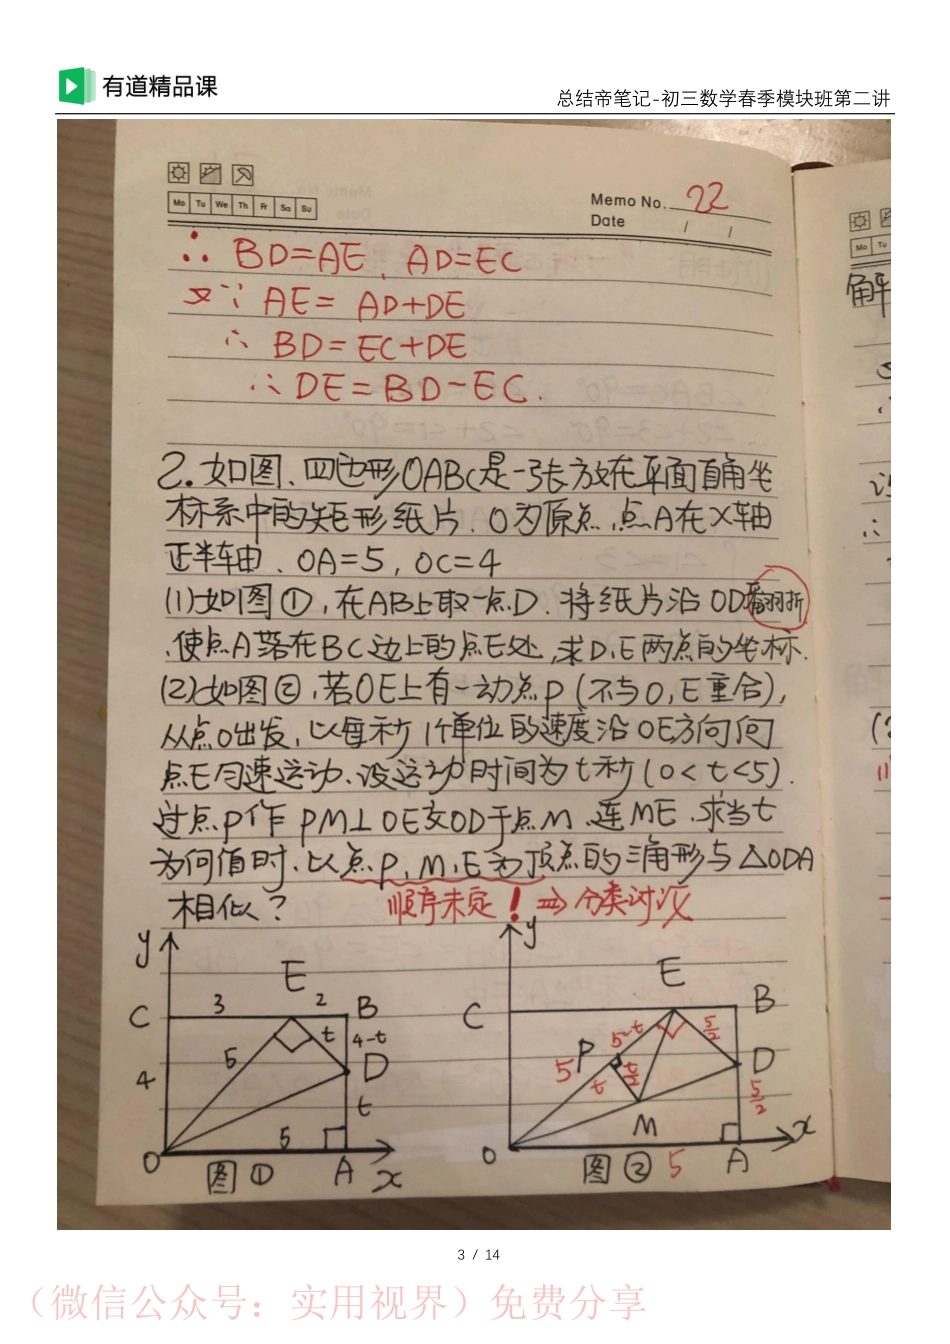 有道精品课
总结帝笔记-初三数学春季模块班第二讲
Mo Tu We Th Fr Sa Su
Memo No. 22
Date / /
∴ BD=AE, AD=EC
又∵ AE= AD+DE
∴ BD= EC+DE
∴ DE=BD-EC.
2.如图、四边形OABC是一张放在平面直角坐
标系中的矩形纸片.O为原点,点A在X轴
正半轴、OA=5, OC=4
(1)如图①,在AB上取一点D.将纸片沿OD翻折
使点A落在BC边上的点E处,求D,E两点的坐标.
(2)如图②,若OE上有一动点P(不与O,E重合),
从点O出发,以每秒1个单位的速度沿OE方向向
点E匀速运动、设运动时间为t秒(0<t<5).
过点P作PM⊥OE交OD于点M、连ME、求当t
为何值时、以点P、M、E为顶点的三角形与△ODA
相似?
顺序未定!⇒分类讨论
y
C 3 E 2 B
5 t 4-t
4 D
t
5
O 图① A x
y
C E B
5-t 5/2
P
5 t t/2 D
5/2
M
O 图② 5 A x
Mo Tu
解
3 / 14
（微信公众号：实用视界）免费分享